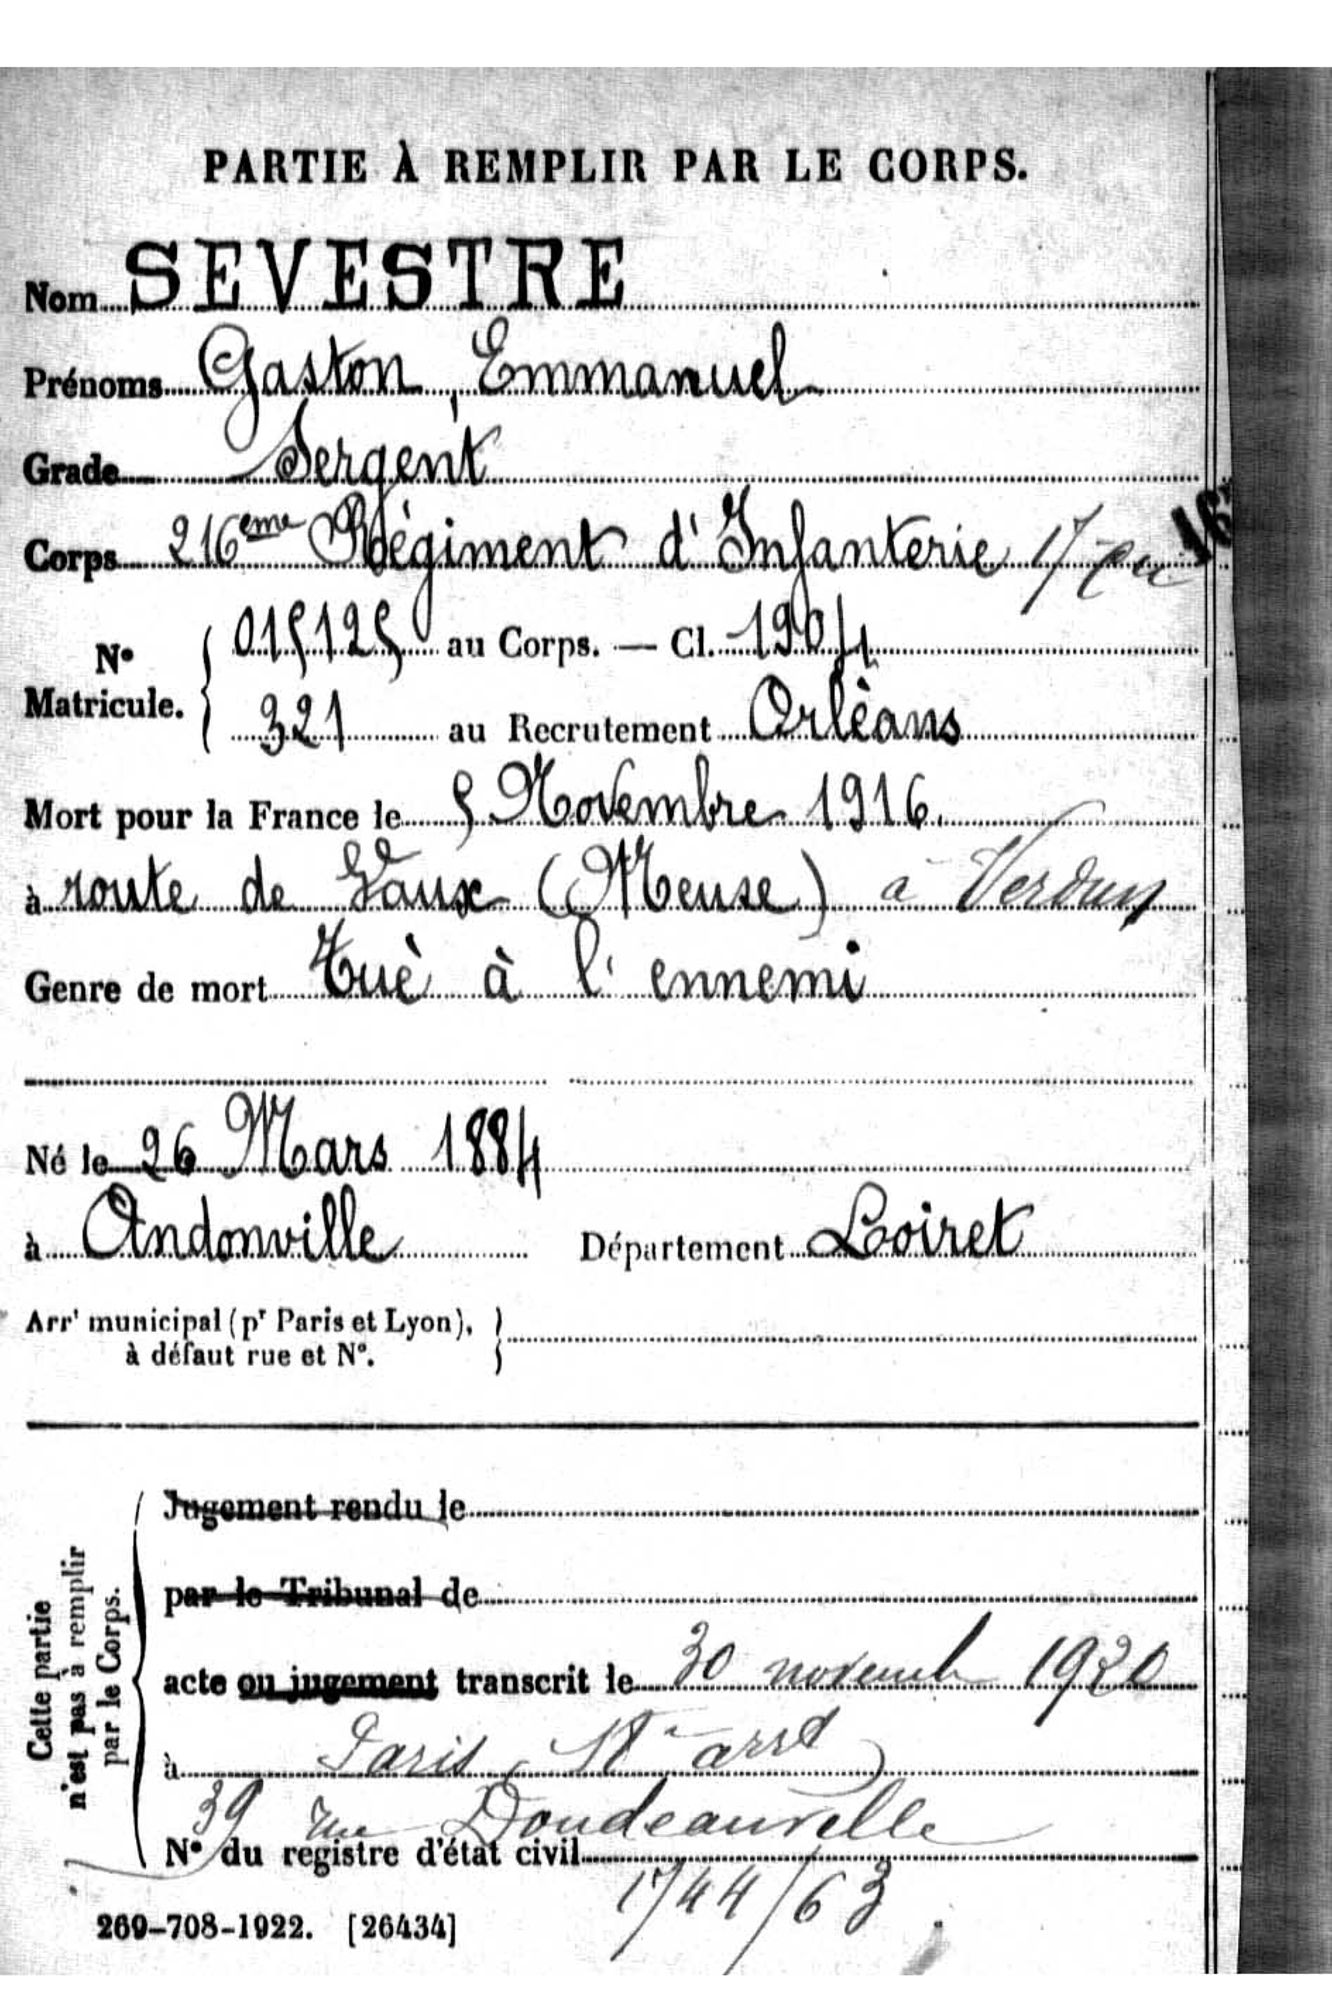 PARTIE À REMPLIR PAR LE CORPS.
Nom SEVESTRE
Prénoms Gaston, Emmanuel
Grade Sergent
Corps 216ème Régiment d'Infanterie 16
N° Matricule. { 015125 au Corps. — Cl. 1904
321 au Recrutement Orlèans
Mort pour la France le 5 Novembre 1916.
à route de Vaux (Meuse) à Verdun
Genre de mort Tuè à l'ennemi
Né le 26 Mars 1884
à Andonville Département Loiret
Arrt municipal (pr Paris et Lyon), à défaut rue et N°. }
Cette partie n'est pas à remplir par le Corps. {
Jugement rendu le
par le Tribunal de
acte ou jugement transcrit le 30 novemb 1920
à Paris, arrt
39 rue Doudeauville
N° du registre d'état civil
1744/63
269-708-1922. [26434]